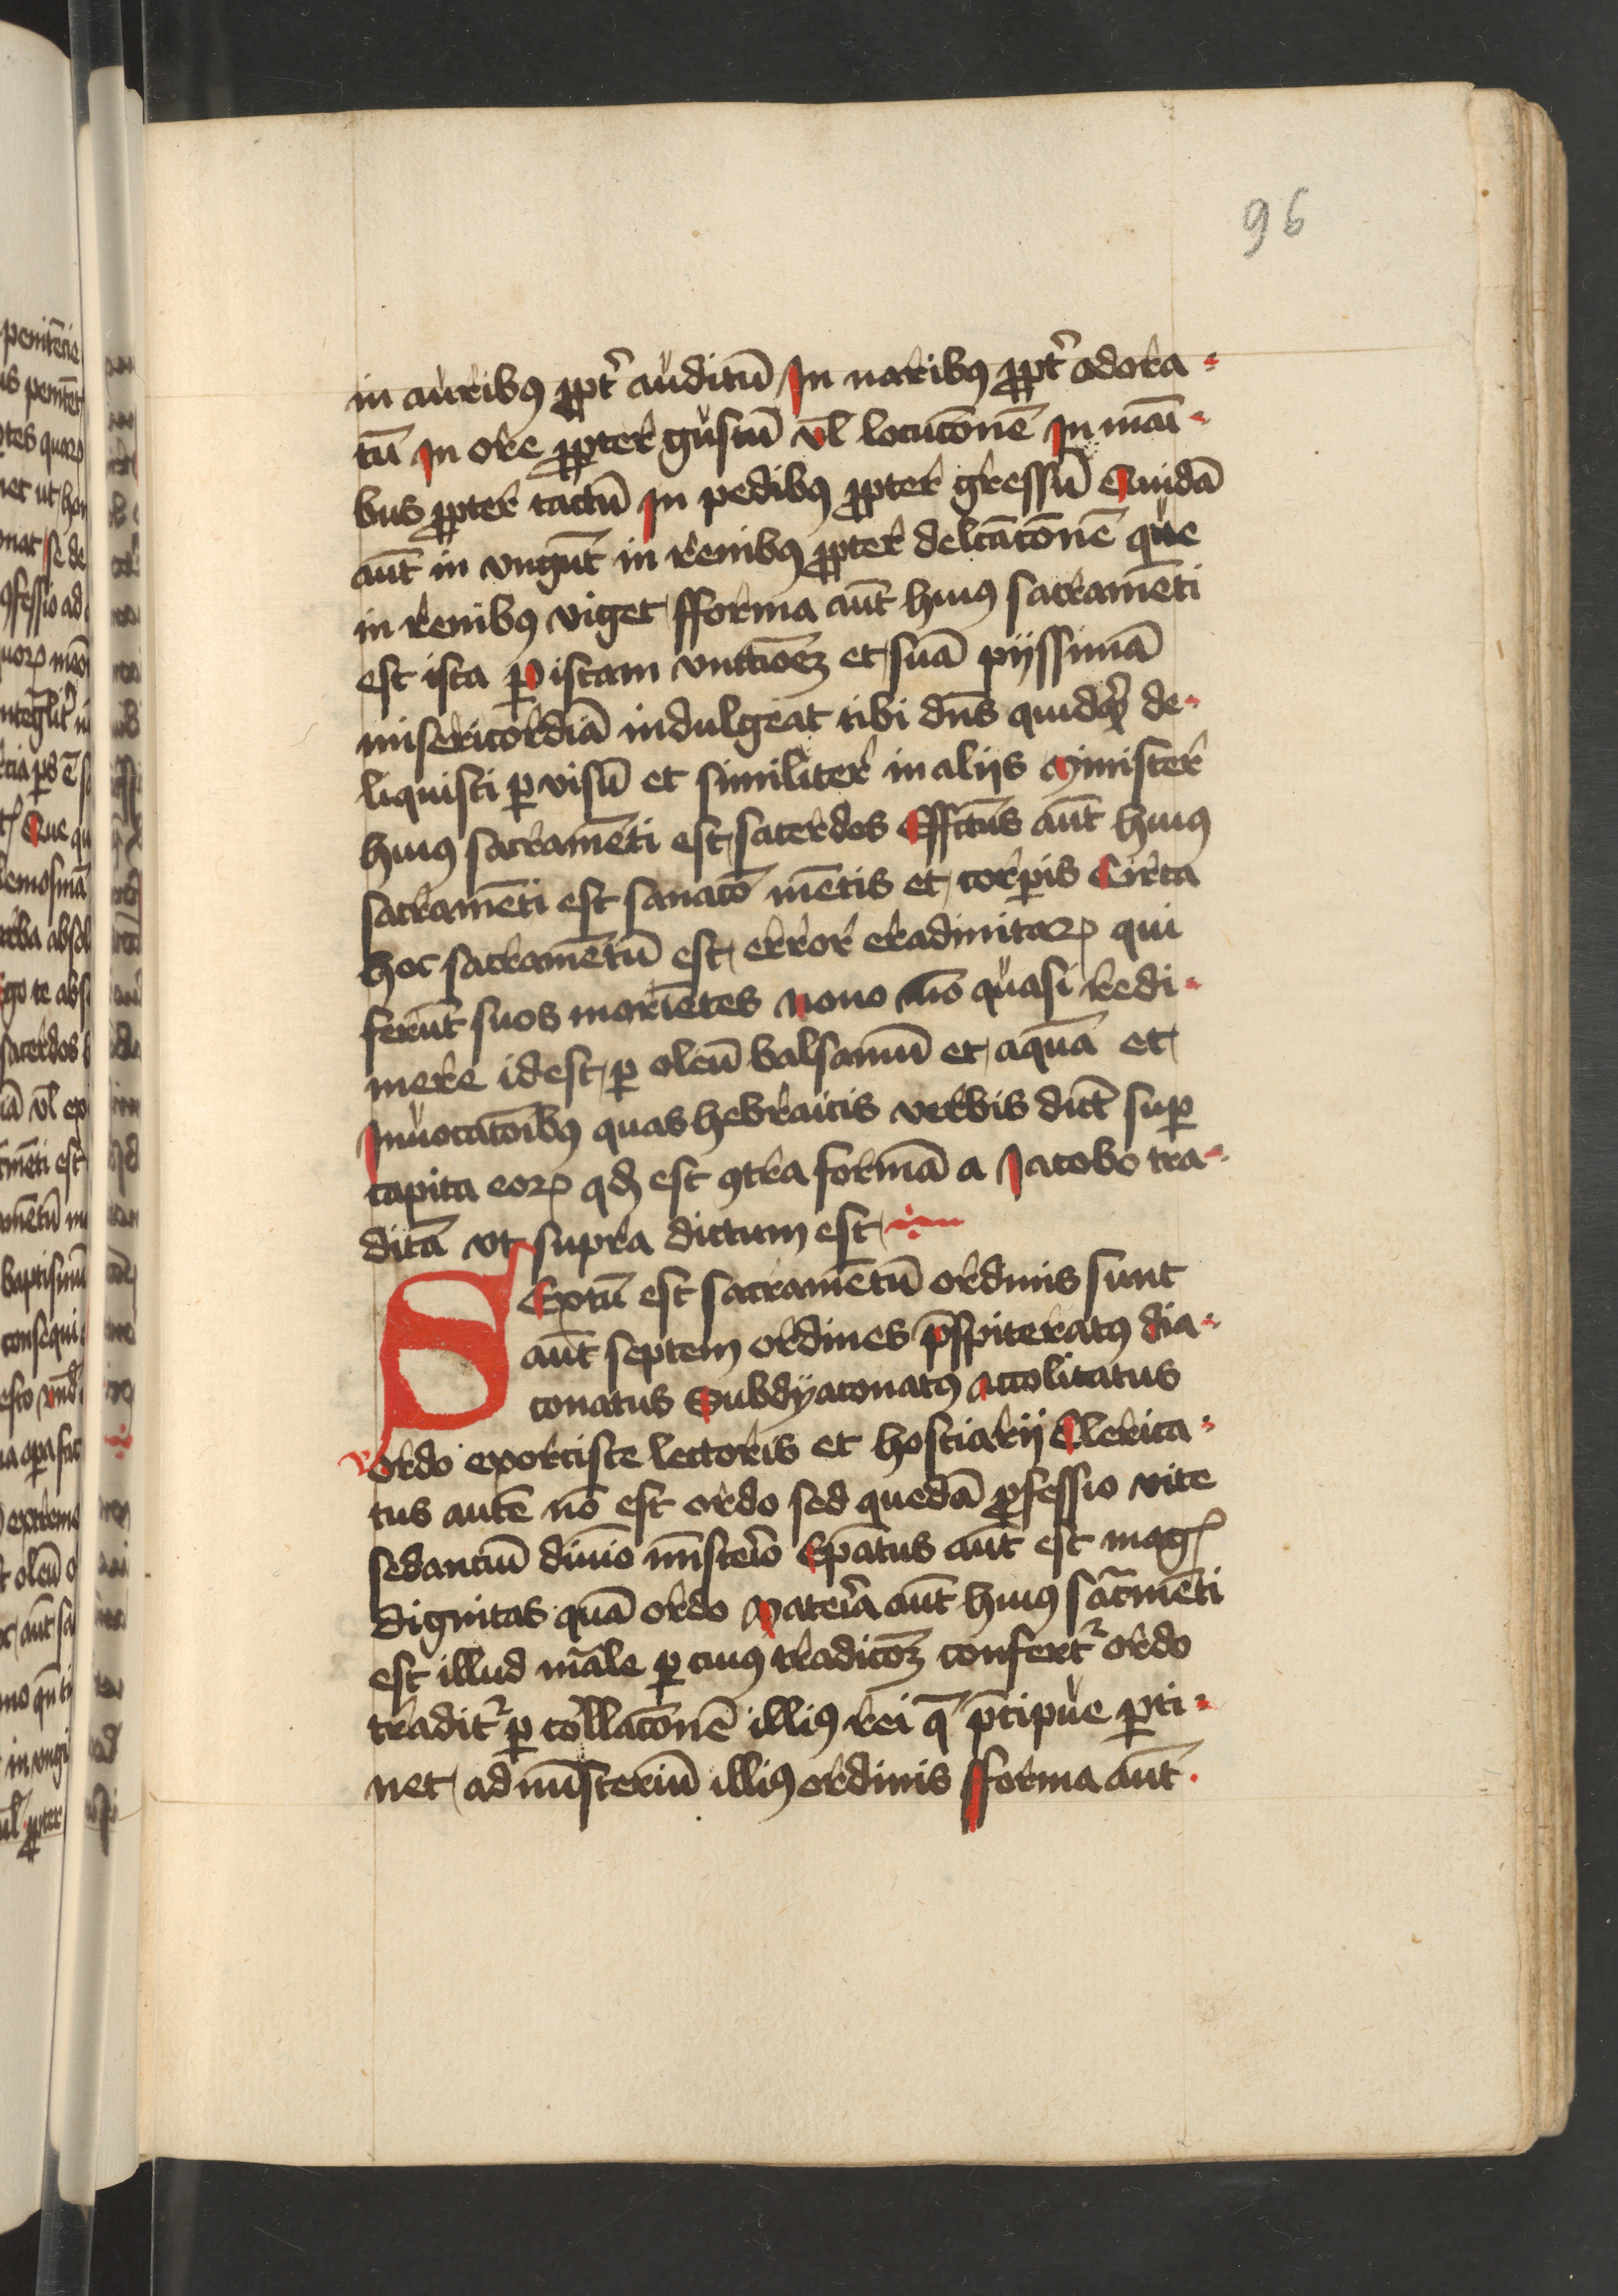 96
in auribus ꝓpt̉ auditū In naribus ꝓpt̉ odora-
tū In ore ꝓpter gustū vl̄ locucōnē In maī-
bus ꝓpter tactū In pedibus ꝓpter gressū Quidā
aūt in vngūt in renibus ꝓpter delcāconē que
in renibus viget fforma aūt huius sacramēti
est ista ꝑ istam vnctiōeꝫ et suā pijssimā
misericordiā indulgeat tibi dn̄s quidqͥd de-
liquisti ꝑ visū et similiter in aliis Minister
huius sacramēti est sacerdos Effctūs aūt huius
sacramēti est sanacō mētis et corꝑis Circa
hoc sacramētū est error eradinitaꝝ qui
ferūt suos moriētes nouo mō quasi redi-
mere id est ꝑ oleū balsamū et aquā et
Inuocatōibus quas hebraicis verbis dict̄ suꝑ
capita eoꝝ qd̄ est ꝯtra formā a Iacobo tra-
ditā vt supra dictum est
Sextū est sacramētū ordinis sunt
aūt septem ordines p̄sspiteratus dia-
conatus Subdyaconatus Accolitatus
ordo exorciste lectoris et hostiarij Clerica-
tus autē nō est ordo sed quedā ꝓfessio vite
se dantiū diuīo mīsterīo Ep̄atus aūt est magꝭ
dignitas quā ordo Materīa aūt huius sac̄rmēti
est illud māle ꝑ cuius tradicōeꝫ confert᷑ ordo
tradit᷑ ꝑ collacōnē illius rei q̄ p̄cipue ꝑti-
net ad mīsteriū illius ordinis fforma aūt